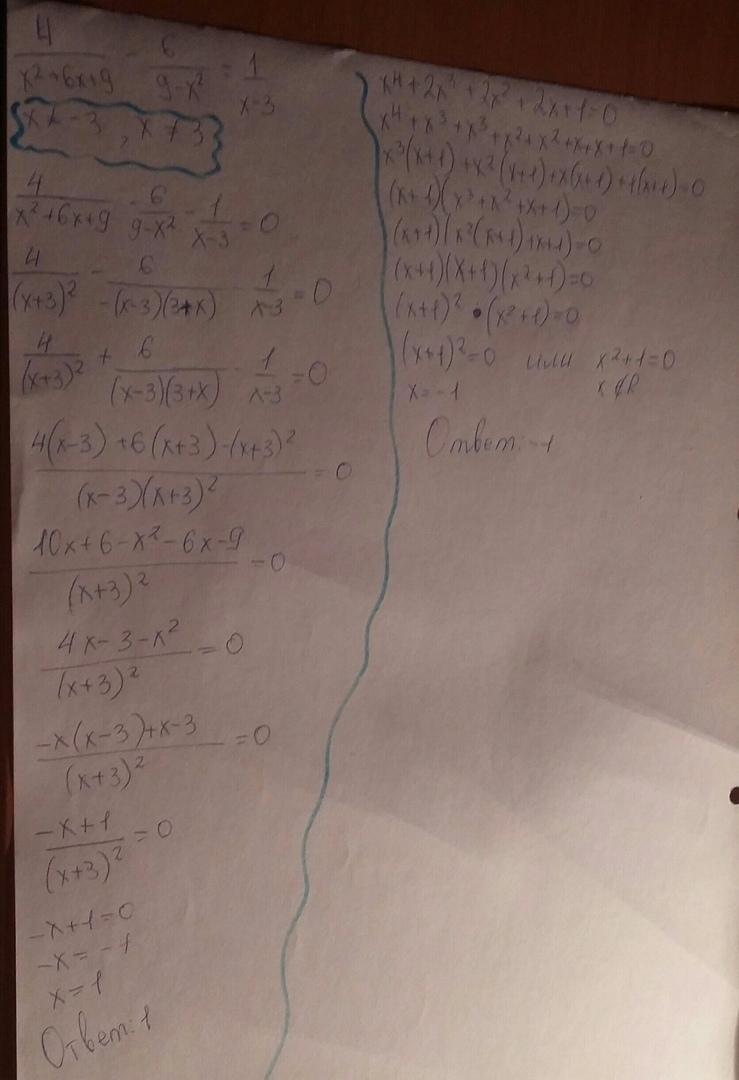 4/(x²+6x+9) - 6/(9-x²) = 1/(x-3)
x ≠ -3, x ≠ 3
4/(x²+6x+9) - 6/(9-x²) - 1/(x-3) = 0
4/(x+3)² - 6/(-(x-3)(3+x)) - 1/(x-3) = 0
4/(x+3)² + 6/((x-3)(3+x)) - 1/(x-3) = 0
(4(x-3)+6(x+3)-(x+3)²)/((x-3)(x+3)²) = 0
(10x+6-x²-6x-9)/(x+3)² = 0
(4x-3-x²)/(x+3)² = 0
(-x(x-3)+x-3)/(x+3)² = 0
(-x+1)/(x+3)² = 0
-x+1=0
-x=-1
x=1
Ответ: 1
x⁴+2x³+2x²+2x+1=0
x⁴+x³+x³+x²+x²+x+x+1=0
x³(x+1)+x²(x+1)+x(x+1)+1(x+1)=0
(x+1)(x³+x²+x+1)=0
(x+1)(x²(x+1)+x+1)=0
(x+1)(x+1)(x²+1)=0
(x+1)²·(x²+1)=0
(x+1)²=0 или x²+1=0
x=-1 x∉R
Ответ: -1